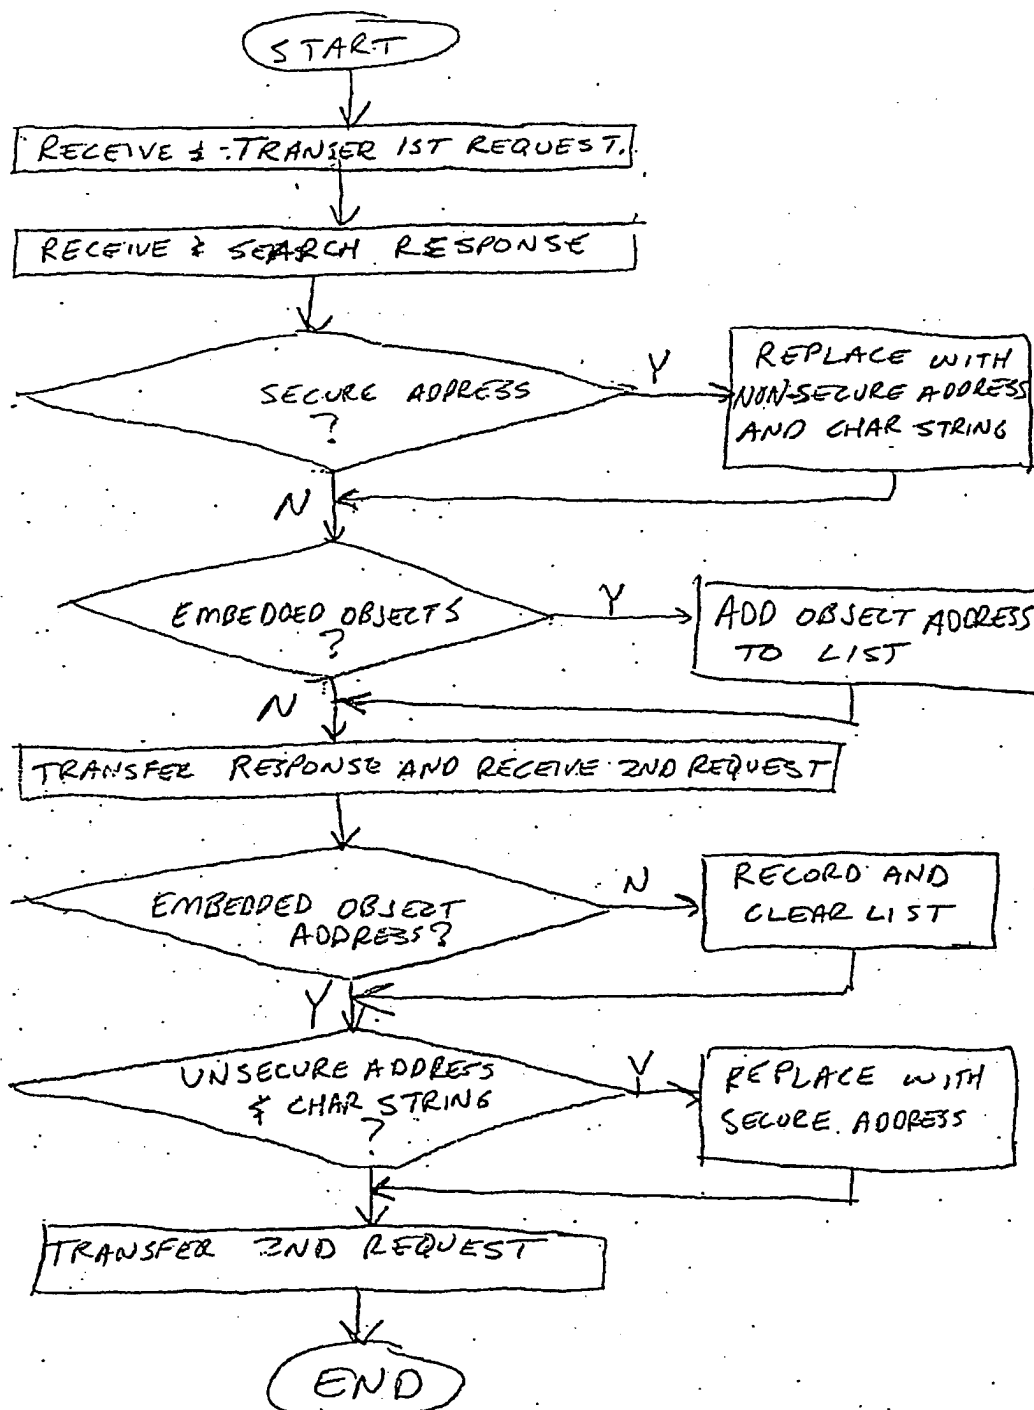 START
RECEIVE & TRANSER 1ST REQUEST.
RECEIVE & SEARCH RESPONSE
SECURE ADDRESS
?
Y
REPLACE WITH
NON-SECURE ADDRESS
AND CHAR STRING
N
EMBEDDED OBJECTS
?
Y
ADD OBJECT ADDRESS
TO LIST
N
TRANSFER RESPONSE AND RECEIVE 2ND REQUEST
EMBEDDED OBJECT
ADDRESS?
N
RECORD AND
CLEAR LIST
Y
UNSECURE ADDRESS
& CHAR STRING
?
Y
REPLACE WITH
SECURE ADDRESS
TRANSFER 2ND REQUEST
END